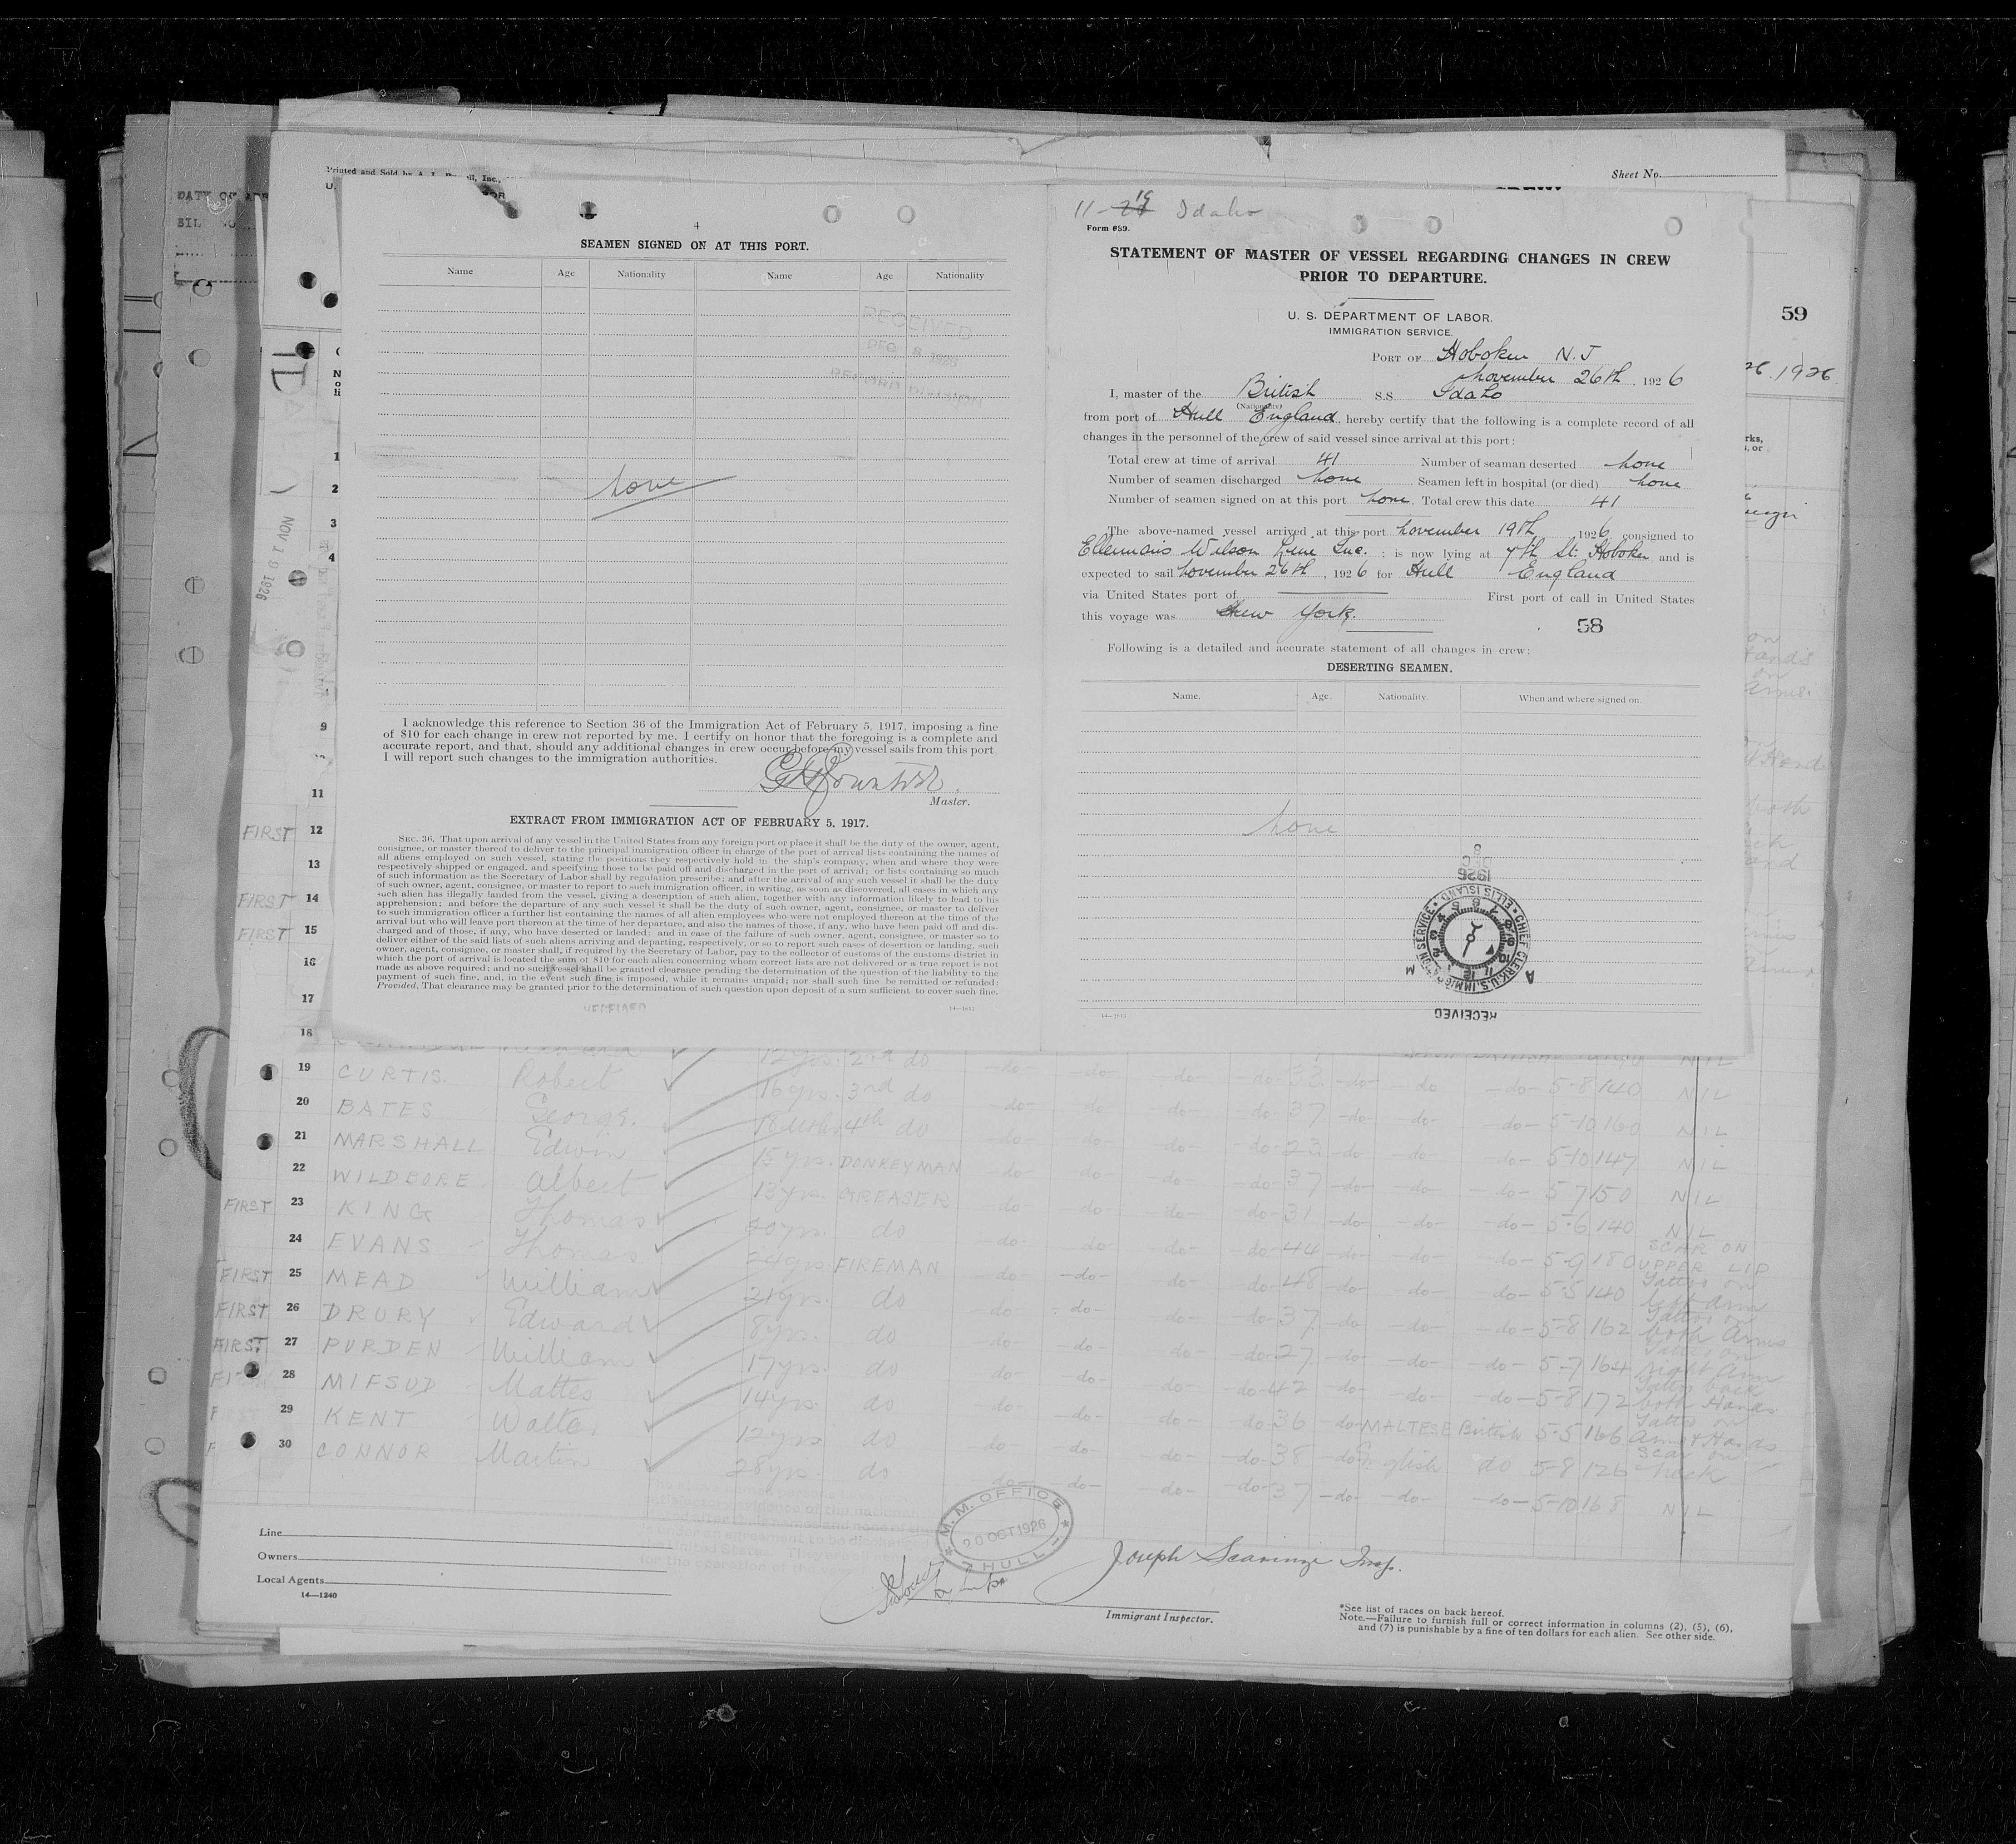 Printed and Sold by A. L.
Sheet No.
4
SEAMEN SIGNED ON AT THIS PORT.
Name Age Nationality Name Age Nationality
RECEIVED
DEC 8 1926
RECORD DIVISION
None
I acknowledge this reference to Section 36 of the Immigration Act of February 5, 1917, imposing a fine
of $10 for each change in crew not reported by me. I certify on honor that the foregoing is a complete and
accurate report, and that, should any additional changes in crew occur before my vessel sails from this port
I will report such changes to the immigration authorities.
Master.
EXTRACT FROM IMMIGRATION ACT OF FEBRUARY 5, 1917.
SEC. 36. That upon arrival of any vessel in the United States from any foreign port or place it shall be the duty of the owner, agent,
consignee, or master thereof to deliver to the principal immigration officer in charge of the port of arrival lists containing the names of
all aliens employed on such vessel, stating the positions they respectively hold in the ship's company, when and where they were
respectively shipped or engaged, and specifying those to be paid off and discharged in the port of arrival; or lists containing so much
of such information as the Secretary of Labor shall by regulation prescribe; and after the arrival of any such vessel it shall be the duty
of such owner, agent, consignee, or master to report to such immigration officer, in writing, as soon as discovered, all cases in which any
such alien has illegally landed from the vessel, giving a description of such alien, together with any information likely to lead to his
apprehension; and before the departure of any such vessel it shall be the duty of such owner, agent, consignee, or master to deliver
to such immigration officer a further list containing the names of all alien employees who were not employed thereon at the time of the
arrival but who will leave port thereon at the time of her departure, and also the names of those, if any, who have been paid off and dis-
charged and of those, if any, who have deserted or landed; and in case of the failure of such owner, agent, consignee, or master so to
deliver either of the said lists of such aliens arriving and departing, respectively, or so to report such cases of desertion or landing, such
owner, agent, consignee, or master shall, if required by the Secretary of Labor, pay to the collector of customs of the customs district in
which the port of arrival is located the sum of $10 for each alien concerning whom correct lists are not delivered or a true report is not
made as above required; and no such vessel shall be granted clearance pending the determination of the question of the liability to the
payment of such fine, and, in the event such fine is imposed, while it remains unpaid; nor shall such fine be remitted or refunded:
Provided, That clearance may be granted prior to the determination of such question upon deposit of a sum sufficient to cover such fine.
11-19 Idaho
Form 689.
STATEMENT OF MASTER OF VESSEL REGARDING CHANGES IN CREW
PRIOR TO DEPARTURE.
U. S. DEPARTMENT OF LABOR.
IMMIGRATION SERVICE.
PORT OF Hoboken N.J
November 26th, 1926
I, master of the British S.S. Idaho
(Nationality)
from port of Hull England, hereby certify that the following is a complete record of all
changes in the personnel of the crew of said vessel since arrival at this port:
Total crew at time of arrival 41 Number of seaman deserted None
Number of seamen discharged None Seamen left in hospital (or died) None
Number of seamen signed on at this port None. Total crew this date 41
The above-named vessel arrived at this port November 19th, 1926, consigned to
Ellermans Wilson Line Inc.; is now lying at 7th St. Hoboken and is
expected to sail November 26th, 1926 for Hull England
via United States port of First port of call in United States
this voyage was New York.
58
Following is a detailed and accurate statement of all changes in crew:
DESERTING SEAMEN.
Name. Age. Nationality. When and where signed on.
None
DEC 8 1926
CHIEF CLERK U.S. IMMIGRATION SERVICE ELLIS ISLAND
A M
RECEIVED
59
1926
NOV 19 1926
1
2
3
4
9
11
FIRST 12
13
FIRST 14
FIRST 15
16
17
18
19 CURTIS. Robert 12 yrs. 2nd do -do- -do- -do- -do- 33 -do- -do -do- 5-8 140 NIL
20 BATES George. 16 yrs. 3rd do -do- -do- -do- -do- 37 -do- -do- -do- 5-10 160 NIL
21 MARSHALL Edwin 4th do -do- -do- -do- -do- 23 -do- -do- -do- 5-10 147 NIL
22 WILDBORE Albert 15 yrs. DONKEYMAN -do- do -do- -do- 37 -do- -do- -do- 5-7 150 NIL
FIRST 23 KING Thomas 13 yrs. GREASER -do- -do- -do- -do- 31 -do- -do- -do- 5-6 140 NIL
24 EVANS Thomas 20 yrs. do -do- -do- -do- -do- 44 -do- -do- -do- 5-9 180 SCAR ON UPPER LIP
FIRST 25 MEAD William 24 yrs FIREMAN -do- -do- -do- -do- 48 -do- -do- -do- 5-5 140 Tattoo on left arm
FIRST 26 DRURY Edward 21 yrs. do -do- -do- -do- -do- 37 -do- -do- -do- 5-8 162 Tattoo on both Arms
FIRST 27 PURDEN William 8 yrs. do -do- -do- -do- -do- 27 -do- -do- -do- 5-7 164 Tattoo on right Arm
28 MIFSUD Mattes 17 yrs. do -do- -do- -do- -do- 42 -do- -do- -do- 5-8 172 Tattoo back both Hands
29 KENT Walter 14 yrs. do -do- -do- -do- -do- 36 -do- MALTESE British 5-5 166 Tattoo on Arms & Hands
30 CONNOR Martin 12 yrs do -do- -do- -do- -do- 38 -do- English do 5-8 126 Scar on neck
28 yrs. do -do- -do- -do- -do- 37 -do- -do- -do- 5-10 168 NIL
Line
Owners
Local Agents
14—1240
M. M. OFFICE
20 OCT 1926
HULL
Joseph Scarinzi Insp.
Immigrant Inspector.
*See list of races on back hereof.
Note.—Failure to furnish full or correct information in columns (2), (5), (6),
and (7) is punishable by a fine of ten dollars for each alien. See other side.